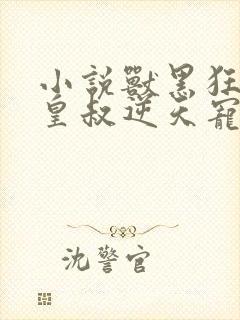 小說獸黑狂
皇叔逆天寵
沈警官